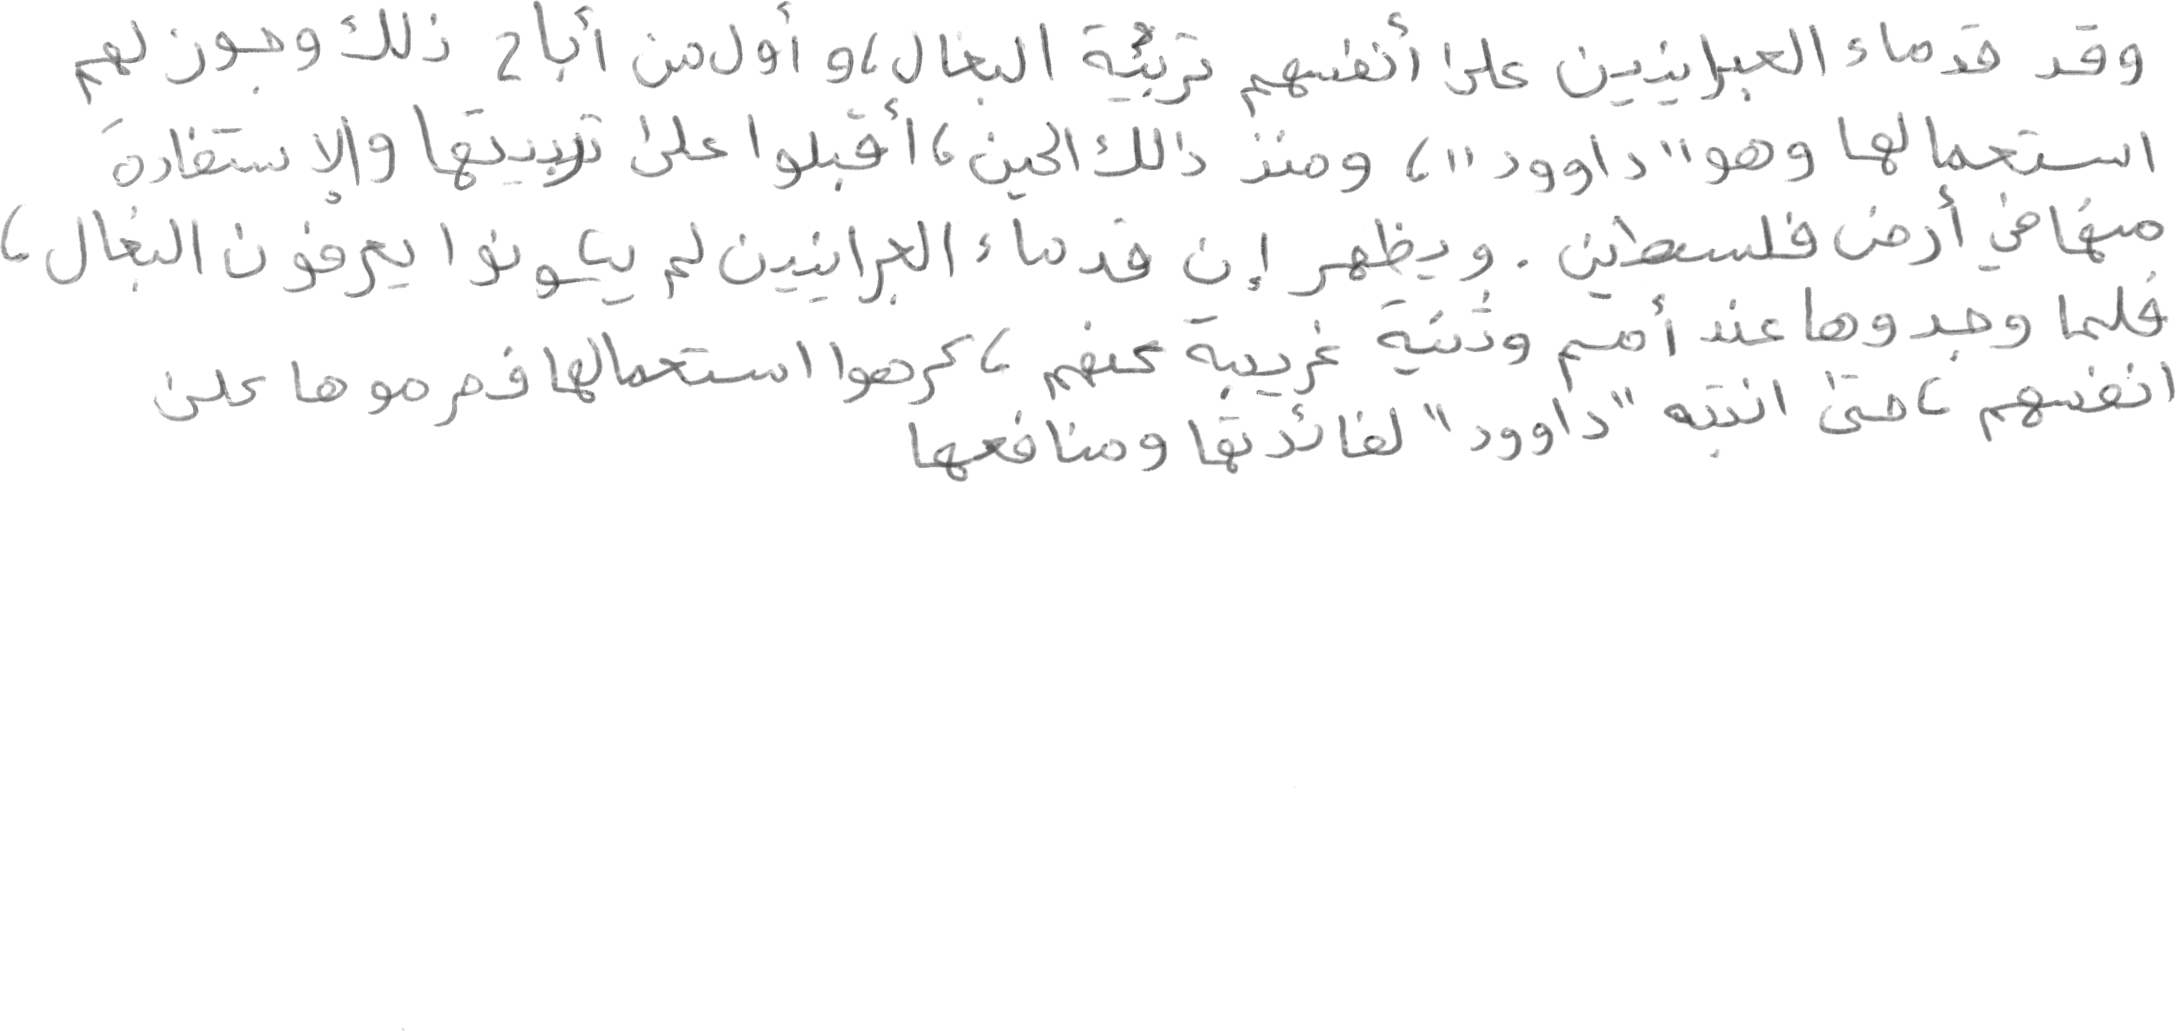 وقد قدماء العبرانيين على أنفسهم تربية البغال، وأول من أباح ذلك وجوز لهم
استعمالها وهو "داوود"، ومنذ ذلك الحين، أقبلوا على تربيتها والإستفادة
منها في أرض فلسطين. ويظهر إن قدماء العبرانيين لم يكونوا يعرفون البغال،
فلما وجدوها عند أمم وثنية غريبة عنهم، كرهوا استعمالها فحرموها على
انفسهم، حتى انتبه "داوود" لفائدتها ومنافعها